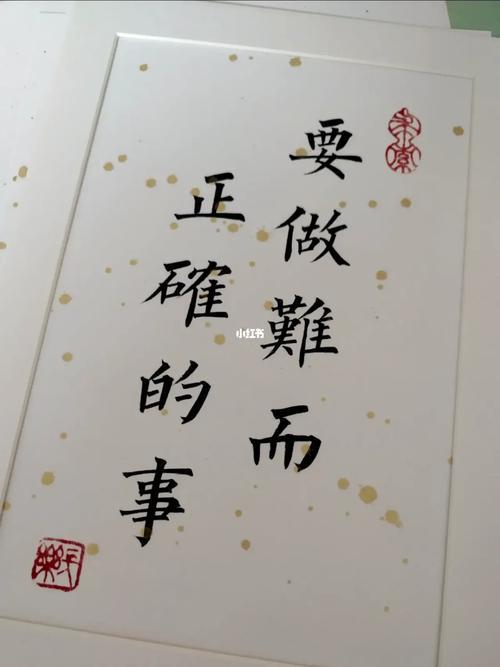 要做難而
正確的事
小红书